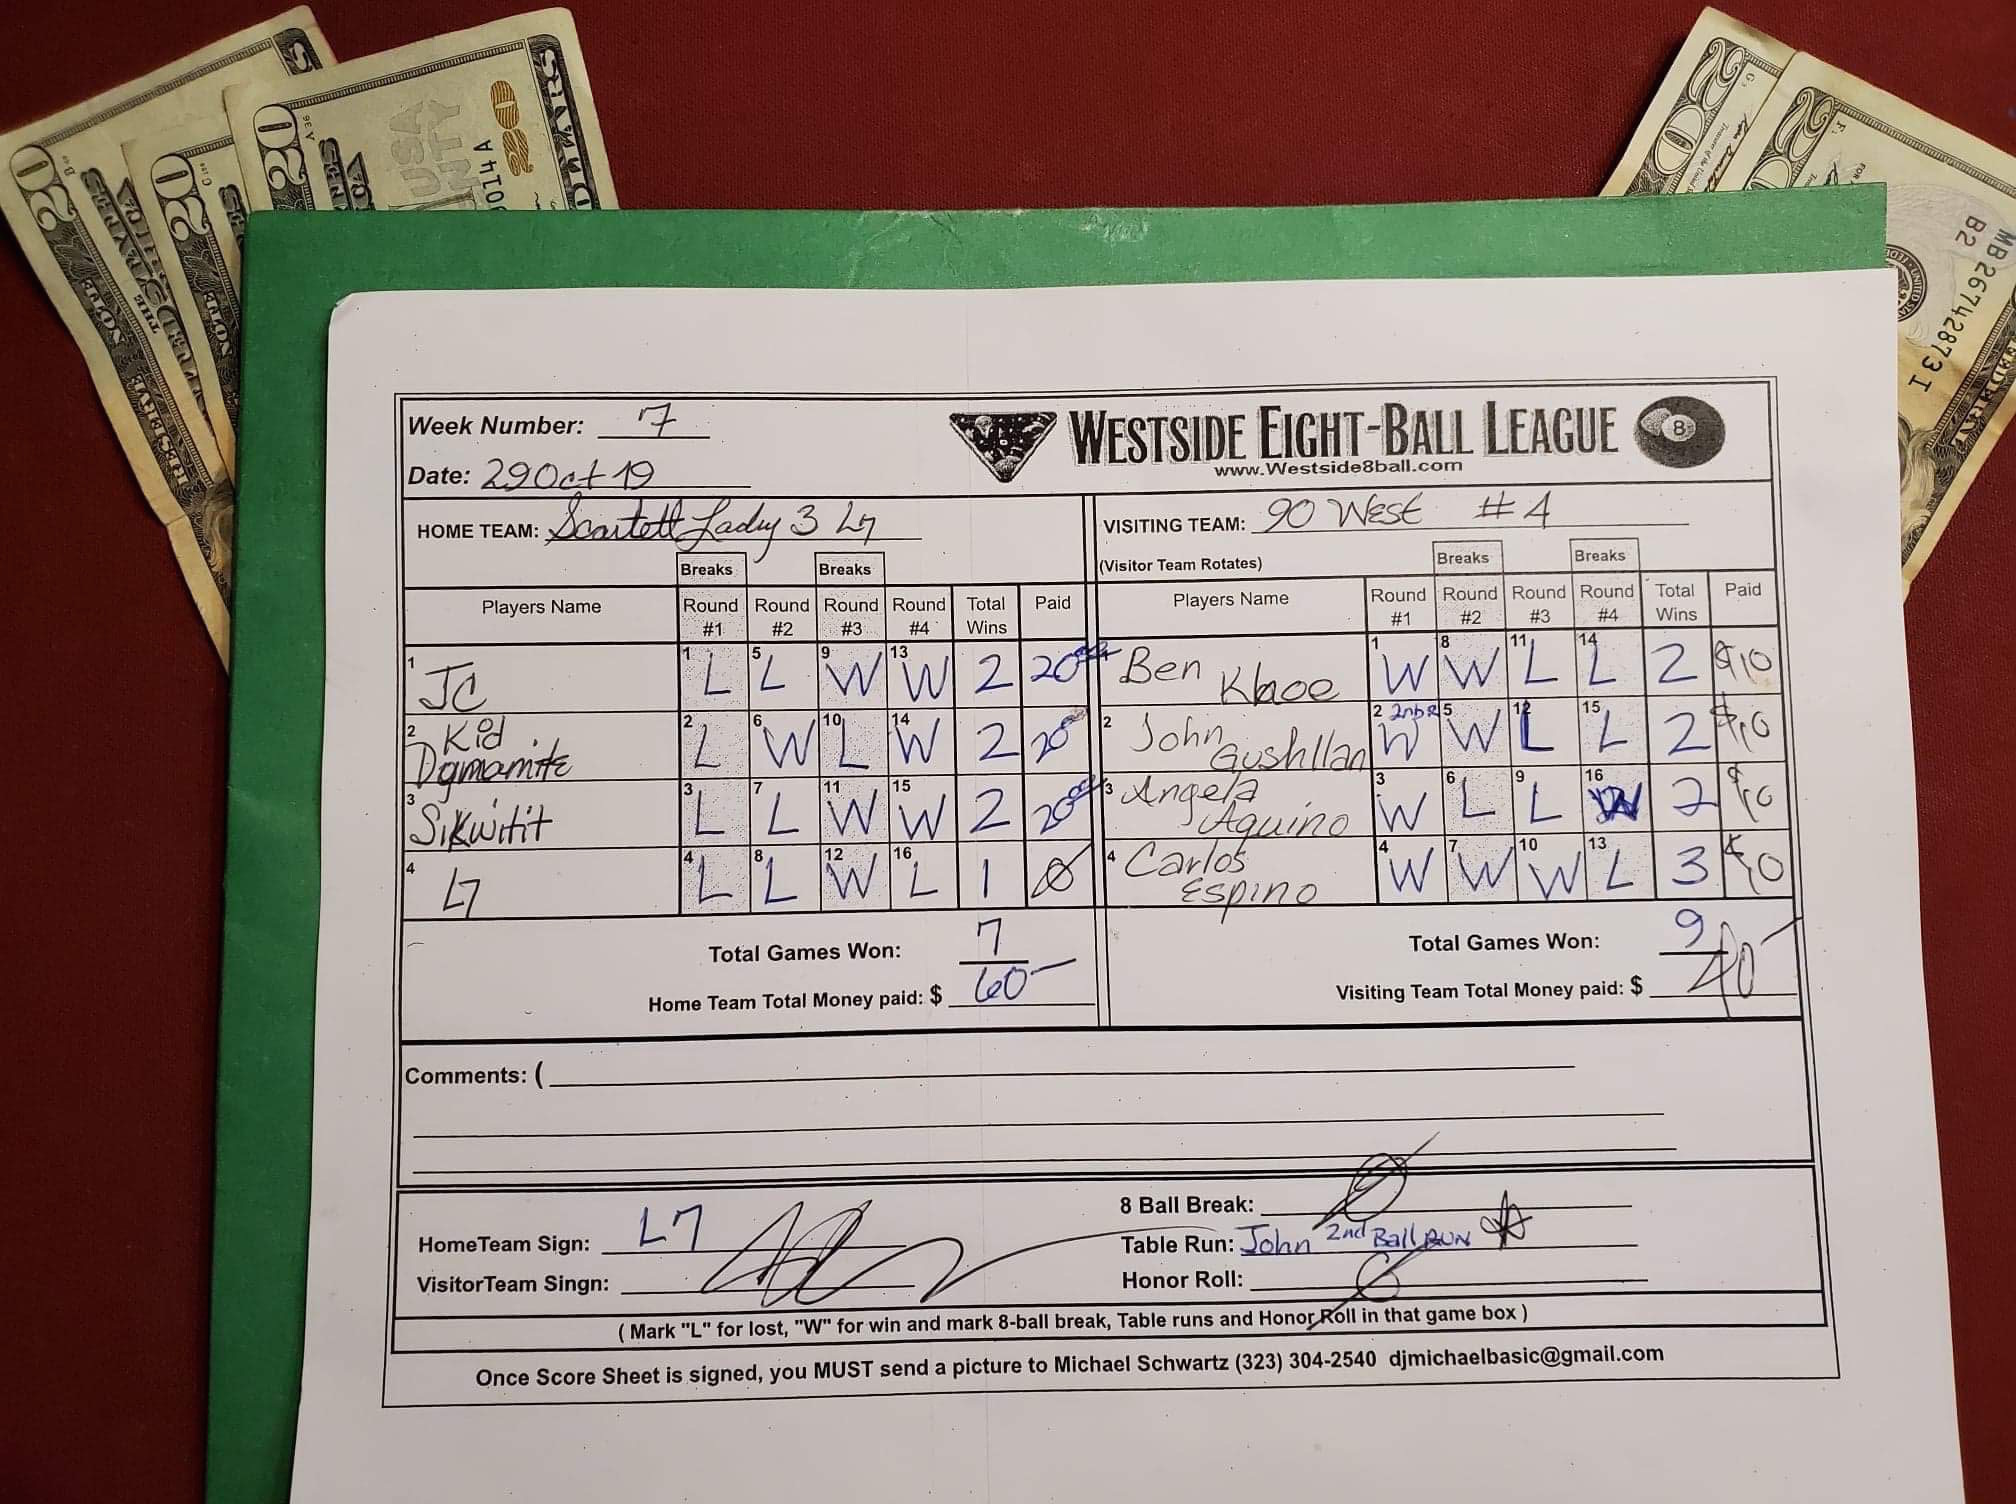 Week Number: 7
WESTSIDE EIGHT-BALL LEAGUE 8
Date: 29 Oct 19
www.Westside8ball.com
HOME TEAM: Scartett Lady 3 L7
VISITING TEAM: 90 West #4
(Visitor Team Rotates)
Breaks Breaks Breaks Breaks
Players Name Round #1 Round #2 Round #3 Round #4 Total Wins Paid
Players Name Round #1 Round #2 Round #3 Round #4 Total Wins Paid
1 JC 1 L 5 L 9 W 13 W 2 20
Ben Klaoe 1 W 8 W 11 L 14 L 2 $10
2 Kid Dymamite 2 L 6 W 10 L 14 W 2 20
2 John Gushllan 2 W 5 W 12 L 15 L 2 $10
3 Sikwitit 3 L 7 L 11 W 15 W 2 20
3 Angela Aquino 3 W 6 L 9 L 16 W 2 $10
4 L7 4 L 8 L 12 W 16 L 1 Ø
4 Carlos Espino 4 W 7 W 10 W 13 L 3 $10
Total Games Won: 7
Home Team Total Money paid: $ 60
Total Games Won: 9
Visiting Team Total Money paid: $ 40
Comments: (
HomeTeam Sign: L7
VisitorTeam Singn:
8 Ball Break: Ø
Table Run: John 2nd Ball RUN
Honor Roll: Ø
( Mark "L" for lost, "W" for win and mark 8-ball break, Table runs and Honor Roll in that game box )
Once Score Sheet is signed, you MUST send a picture to Michael Schwartz (323) 304-2540 djmichaelbasic@gmail.com
20
20
20
20
20
20
MB26742873 I
B2